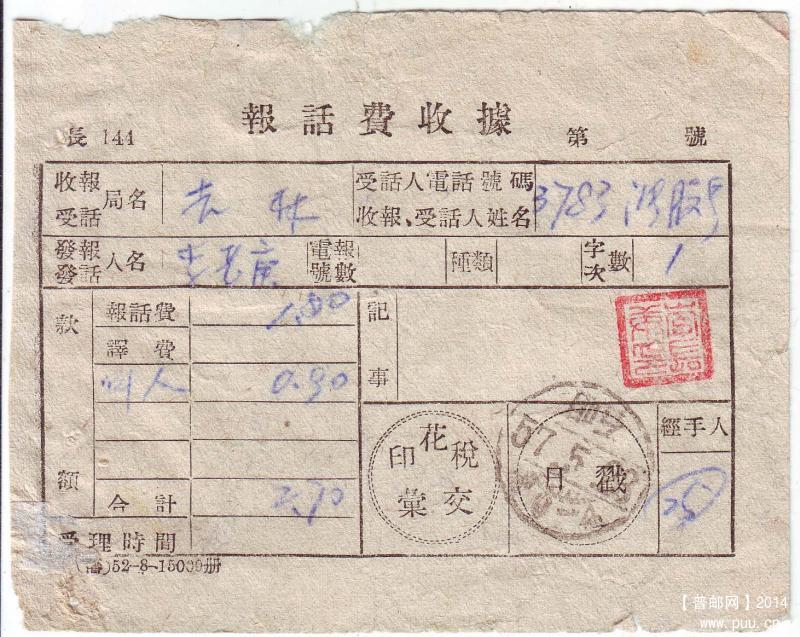 報話費收據
長 144 第 號
收報 受話 局名 吉林 受話人電話號碼 收報、受話人姓名 3783
發報 發話 人名 電報號數 種類 字次數 1
款額 報話費 1.80 記事
譯費
叫人 0.90
合計 2.70
印花稅彙交 日戳 經手人
57 5
受理時間
(瀋)52-8-15000册
【普邮网】2014
www.puu.cn